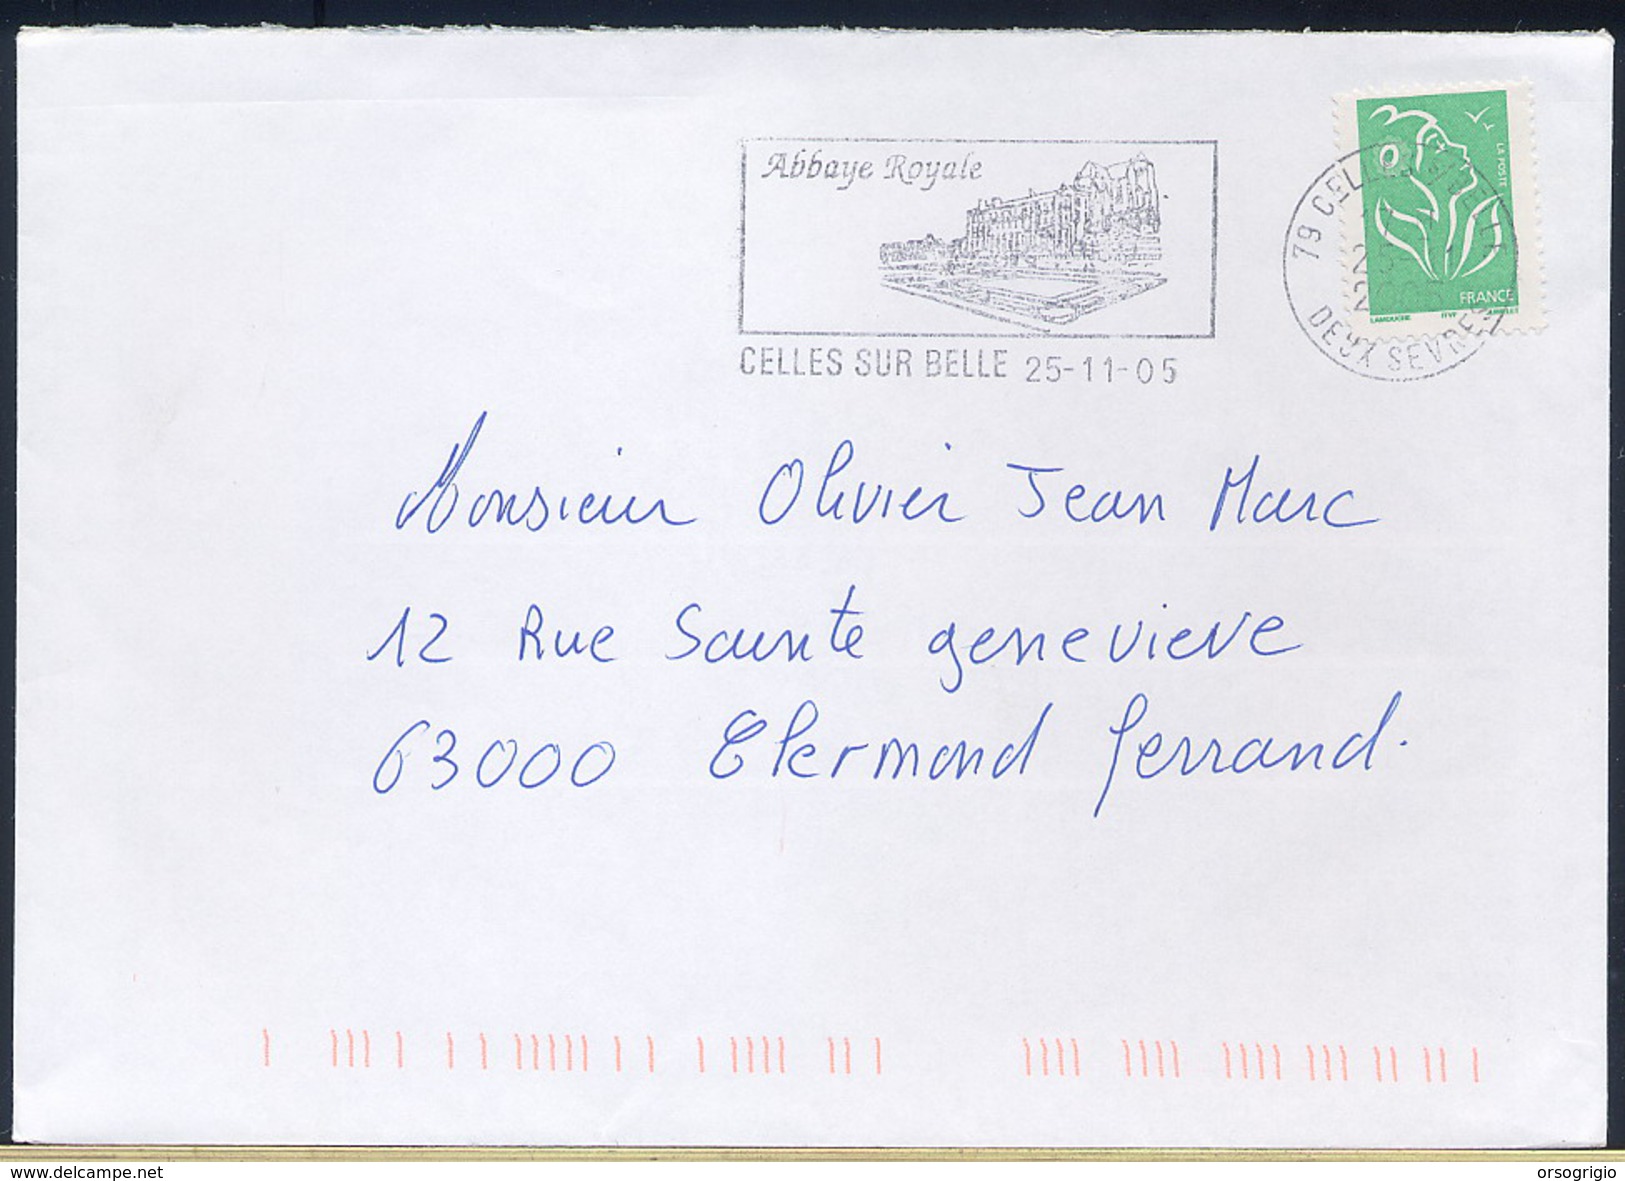 Abbaye Royale
CELLES SUR BELLE 25-11-05
79 CELLES S/ BELLE
DEUX SEVRES
LA POSTE
FRANCE
LAMOUCHE ITVF
Monsieur Olivier Jean Marc
12 Rue Sainte genevieve
63000 Clermond ferrand.
www.delcampe.net
orsogrigio